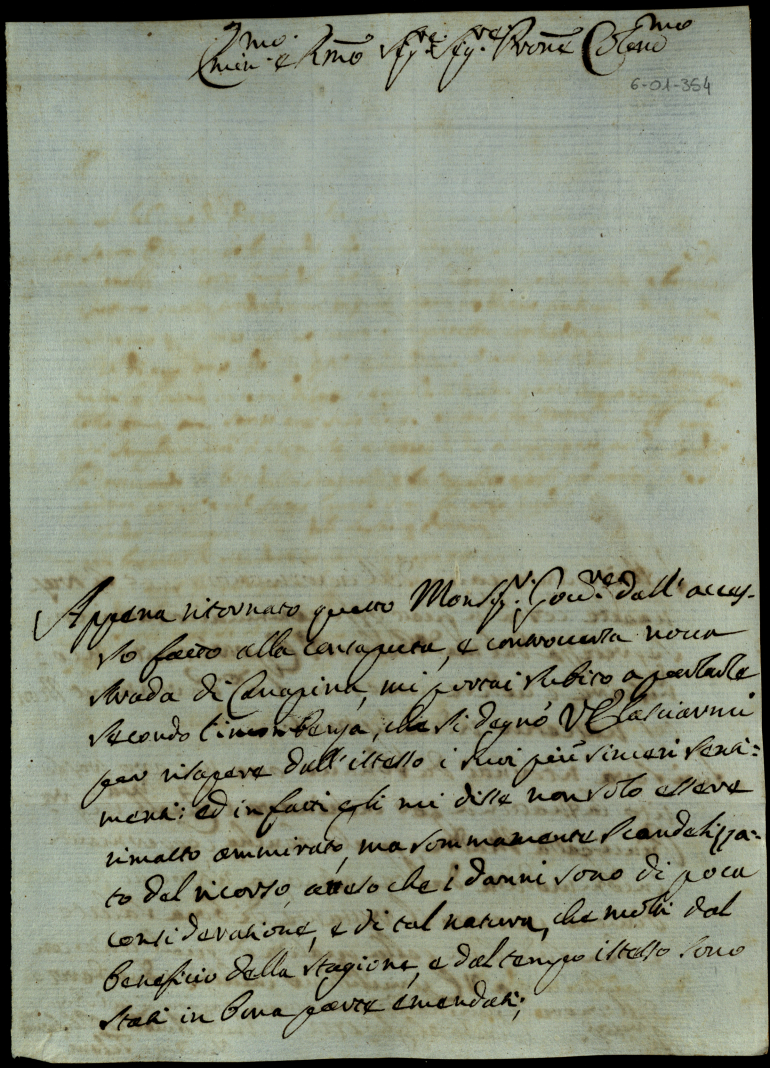 Emin:mo e Rmo Sig:re Sig:re Prone Colmo
6-01-354
Appena ritornato questo Monsig:r Gov:re dall' acces-
so fatto alla consaputa, e controversa nova
strada di Canapina, mi portai subito a parlarle
secondo l'incombenza, che si degnò VE lasciarmi
per risapere dall'istesso i suoi più sinceri senti=
menti: ed in fatti egli mi disse non solo essere
rimasto ammirato, ma sommamente scandalizza=
to del ricorso, atteso che i danni sono di poca
considerazione, e di tal natura, che molti dal
beneficio della stagione, e dal tempo istesso sono
stati in bona parte emendati;